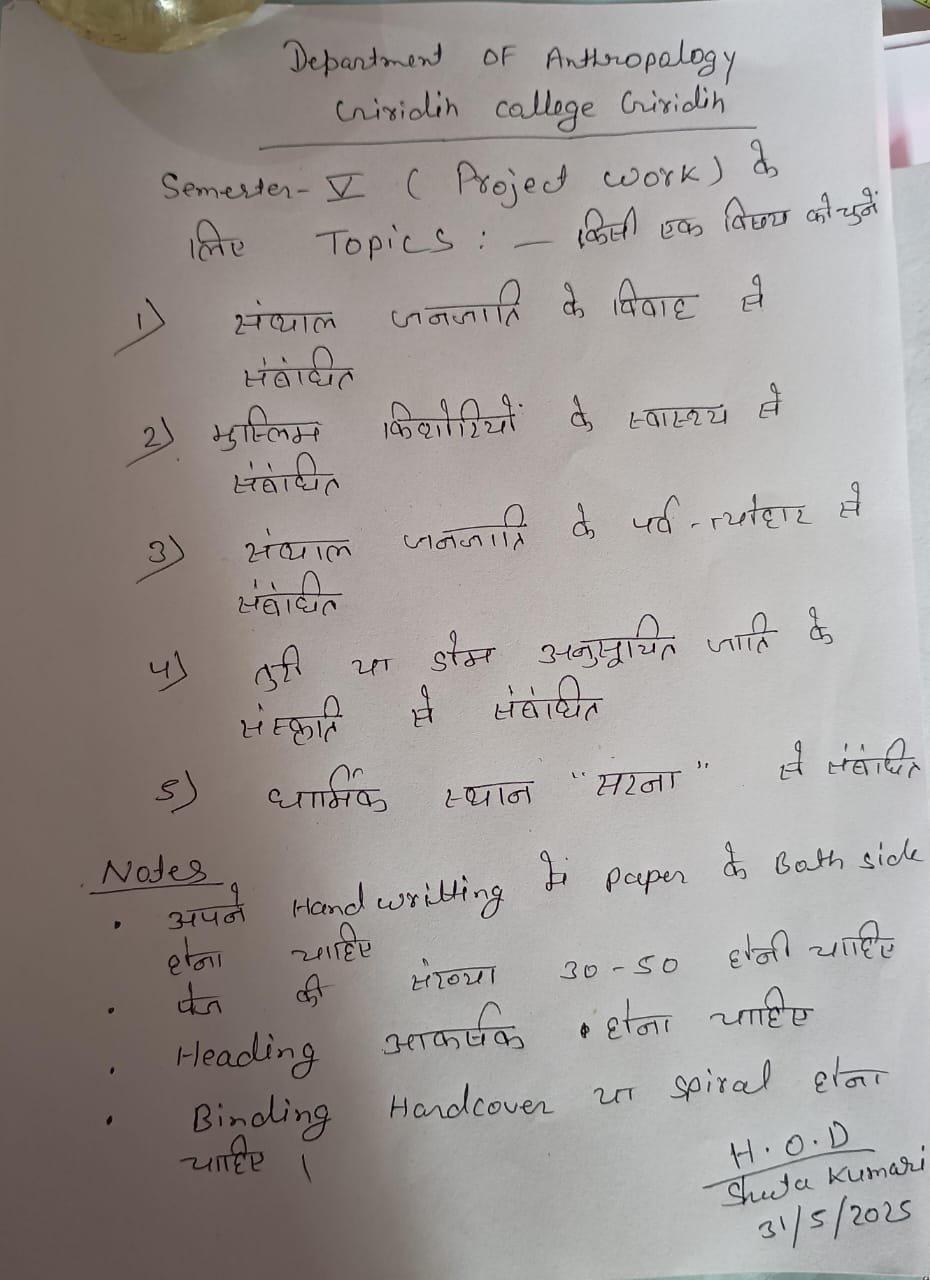 Department OF Anthropology
Giridih college Giridih
Semester - V ( Project work ) के
लिए Topics : – किसी एक विषय को चुनें
1) संथाल जनजाति के विवाह से
संबंधित
2) मुस्लिम किशोरियों के स्वास्थ्य से
संबंधित
3) संथाल जनजाति के पर्व - त्योहार से
संबंधित
4) तुरी या डोम अनुसूचित जाति के
संस्कृति से संबंधित
5) धार्मिक स्थान "सरना" से संबंधित
Notes
• अपने Hand writting में paper के Both side
होना चाहिए
• पेज की संख्या 30 - 50 होनी चाहिए
• Heading आकर्षक होना चाहिए
• Binding Hardcover या spiral होना
चाहिए ।
H.O.D
Shweta Kumari
31/5/2025